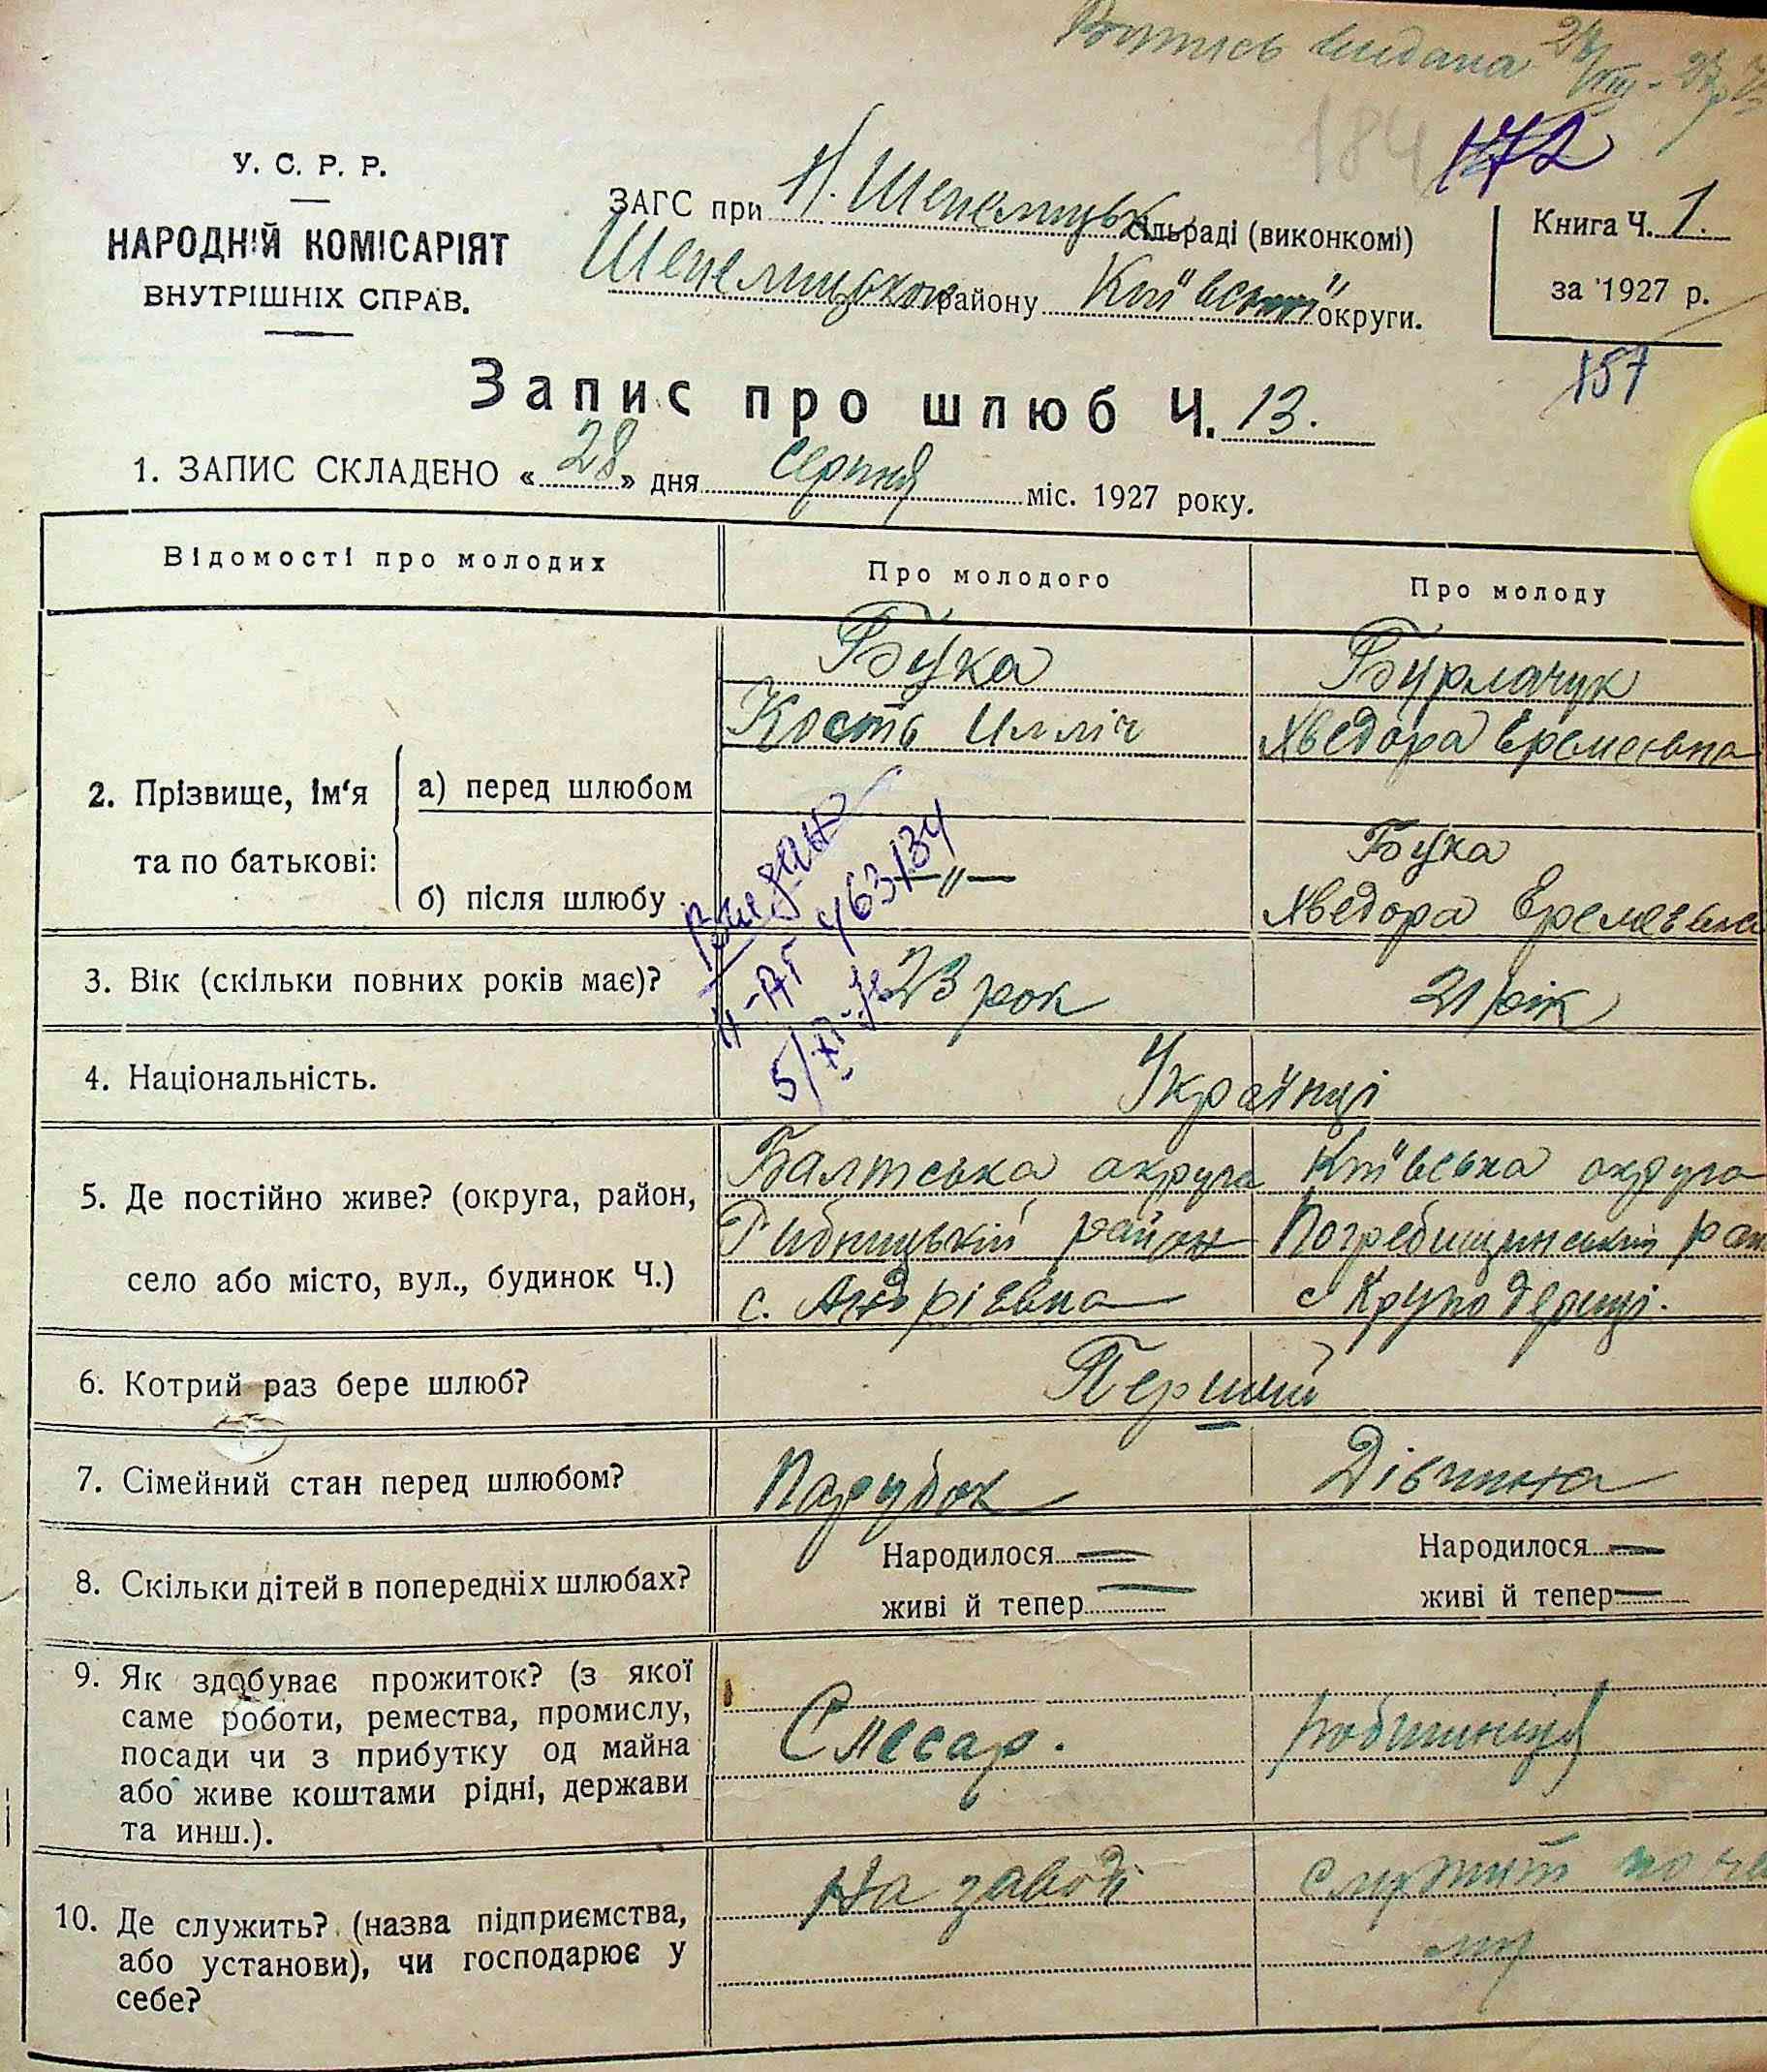 Випись видана 28/VIII-27р
184 172
У. С. Р. Р.
НАРОДНІЙ КОМІСАРІЯТ
ВНУТРІШНІХ СПРАВ.
ЗАГС при Н. Шепелицьк сільраді (виконкомі)
Шепелицького району Київської округи.
Книга Ч. 1.
за 1927 р.
157
Запис про шлюб Ч. 13.
1. ЗАПИС СКЛАДЕНО « 28 » дня серпня міс. 1927 року.
Відомості про молодих Про молодого Про молоду
2. Прізвище, ім'я та по батькові:
а) перед шлюбом
Бука
Кость Илліч
Бурлачук
Хведора Еремеевна
б) після шлюбу
—〃—
Бука
Хведора Еремеевна
Видан
ІІ-АГ 463134
5/XI
3. Вік (скільки повних років має)? 23 рок 21 рік
4. Національність. Українці
5. Де постійно живе? (округа, район,
село або місто, вул., будинок Ч.)
Балтська округа
Рибницькій район
с. Андріевка
Київська округа
Погребищинський рай
с Круподеринці.
6. Котрий раз бере шлюб? Перший
7. Сімейний стан перед шлюбом? Парубок Дівчина
8. Скільки дітей в попередніх шлюбах?
Народилося —
живі й тепер —
Народилося —
живі й тепер —
9. Як здобуває прожиток? (з якої
саме роботи, ремества, промислу,
посади чи з прибутку од майна
або живе коштами рідні, держави
та инш.).
Слесар.
робітниця
10. Де служить? (назва підприємства,
або установи), чи господарює у
себе?
На заводі
служит по на
му